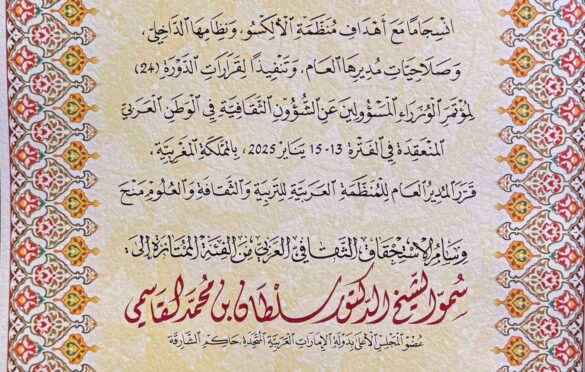 انْسِجَامًا مَعَ أَهْدَافِ مُنَظَّمَةِ الأَلِكْسُو، وَنِظَامِهَا الدَّاخِلِيِّ،
وَصَلَاحِيَّاتِ مُدِيرِهَا العَام، وَتَنْفِيذًا لِقَرَارَاتِ الدَّوْرَةِ (24)
لِمُؤْتَمَرِ الوُزَرَاءِ المَسْؤُولِينَ عَنِ الشُّؤُونِ الثَّقَافِيَّةِ فِي الوَطَنِ العَرَبِيِّ
المُنْعَقِدَةِ فِي الفَتْرَةِ 13-15 يَنَايِر 2025، بِالمَمْلَكَةِ المَغْرِبِيَّةِ،
قَرَّرَ المُدِيرُ العَام لِلْمُنَظَّمَةِ العَرَبِيَّةِ لِلتَّرْبِيَةِ وَالثَّقَافَةِ وَالعُلُومِ مَنْحَ
وِسَامِ الاِسْتِحْقَاقِ الثَّقَافِي العَرَبِي مِنَ الفِئَةِ المُمْتَازَةِ إِلَى:
سُمُوِّ الشَّيْخِ الدُّكْتُورِ سُلْطَان بِن مُحَمَّد القَاسِمِي
عُضْوِ المَجْلِسِ الأَعْلَى بِدَوْلَةِ الإِمَارَاتِ العَرَبِيَّةِ المُتَّحِدَةِ، حَاكِمِ الشَّارِقَةِ